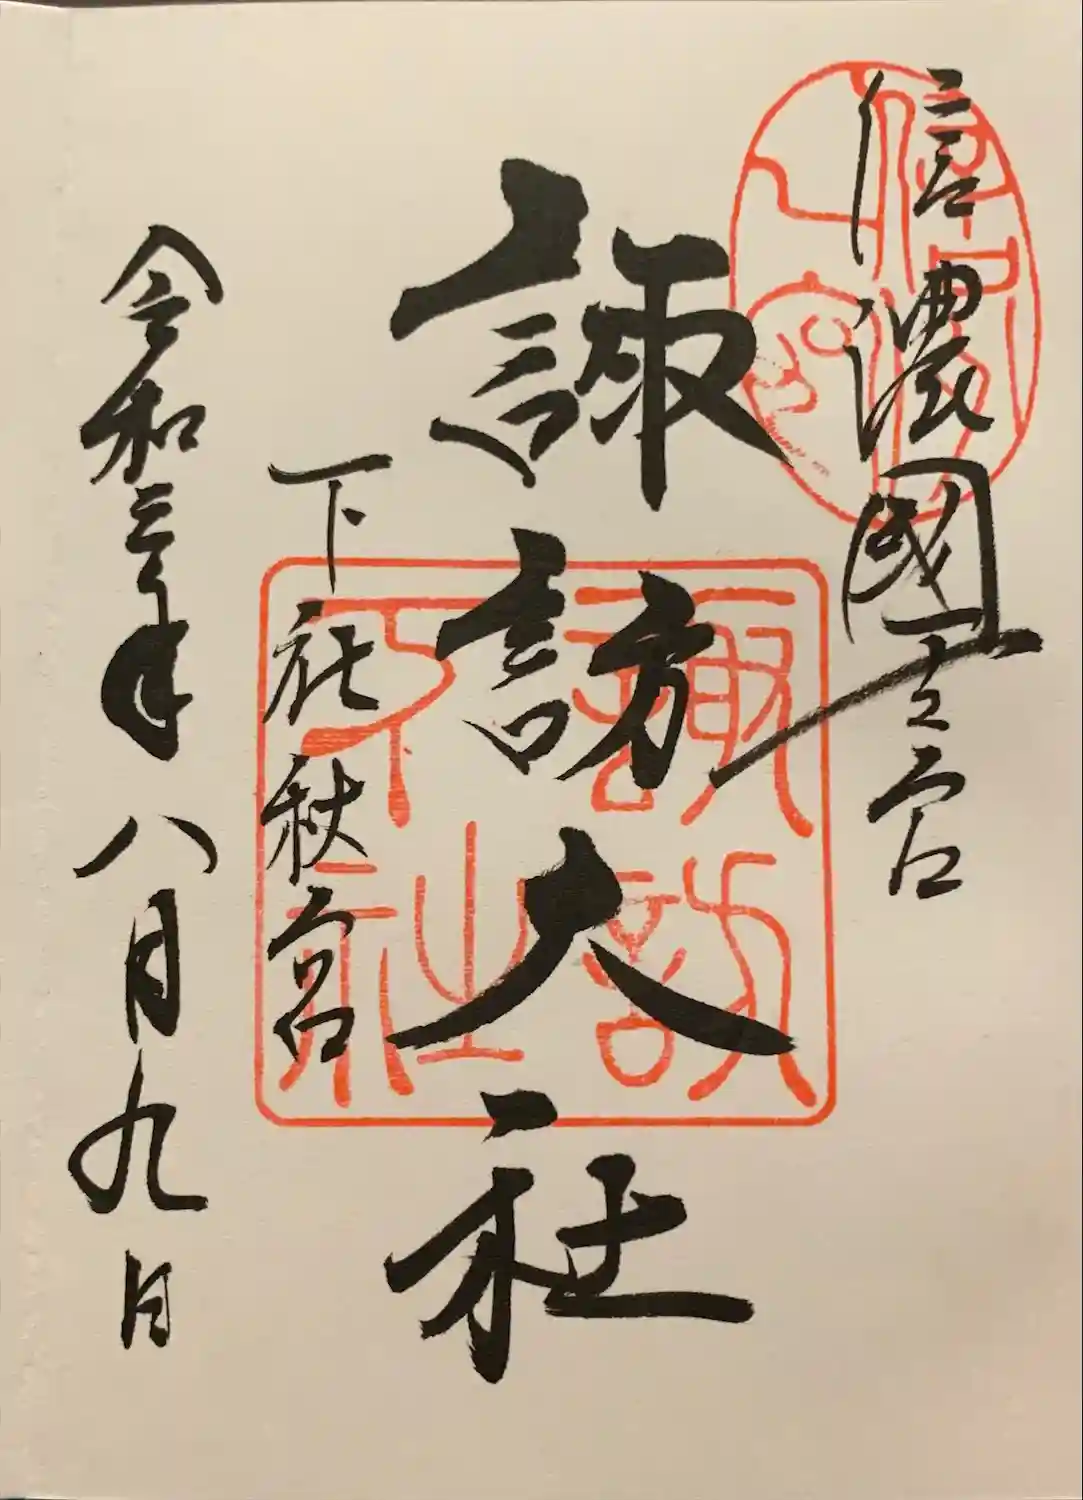 信濃國一之宮
諏訪大社
下社秋宮
令和三年八月九日
諏訪
下社